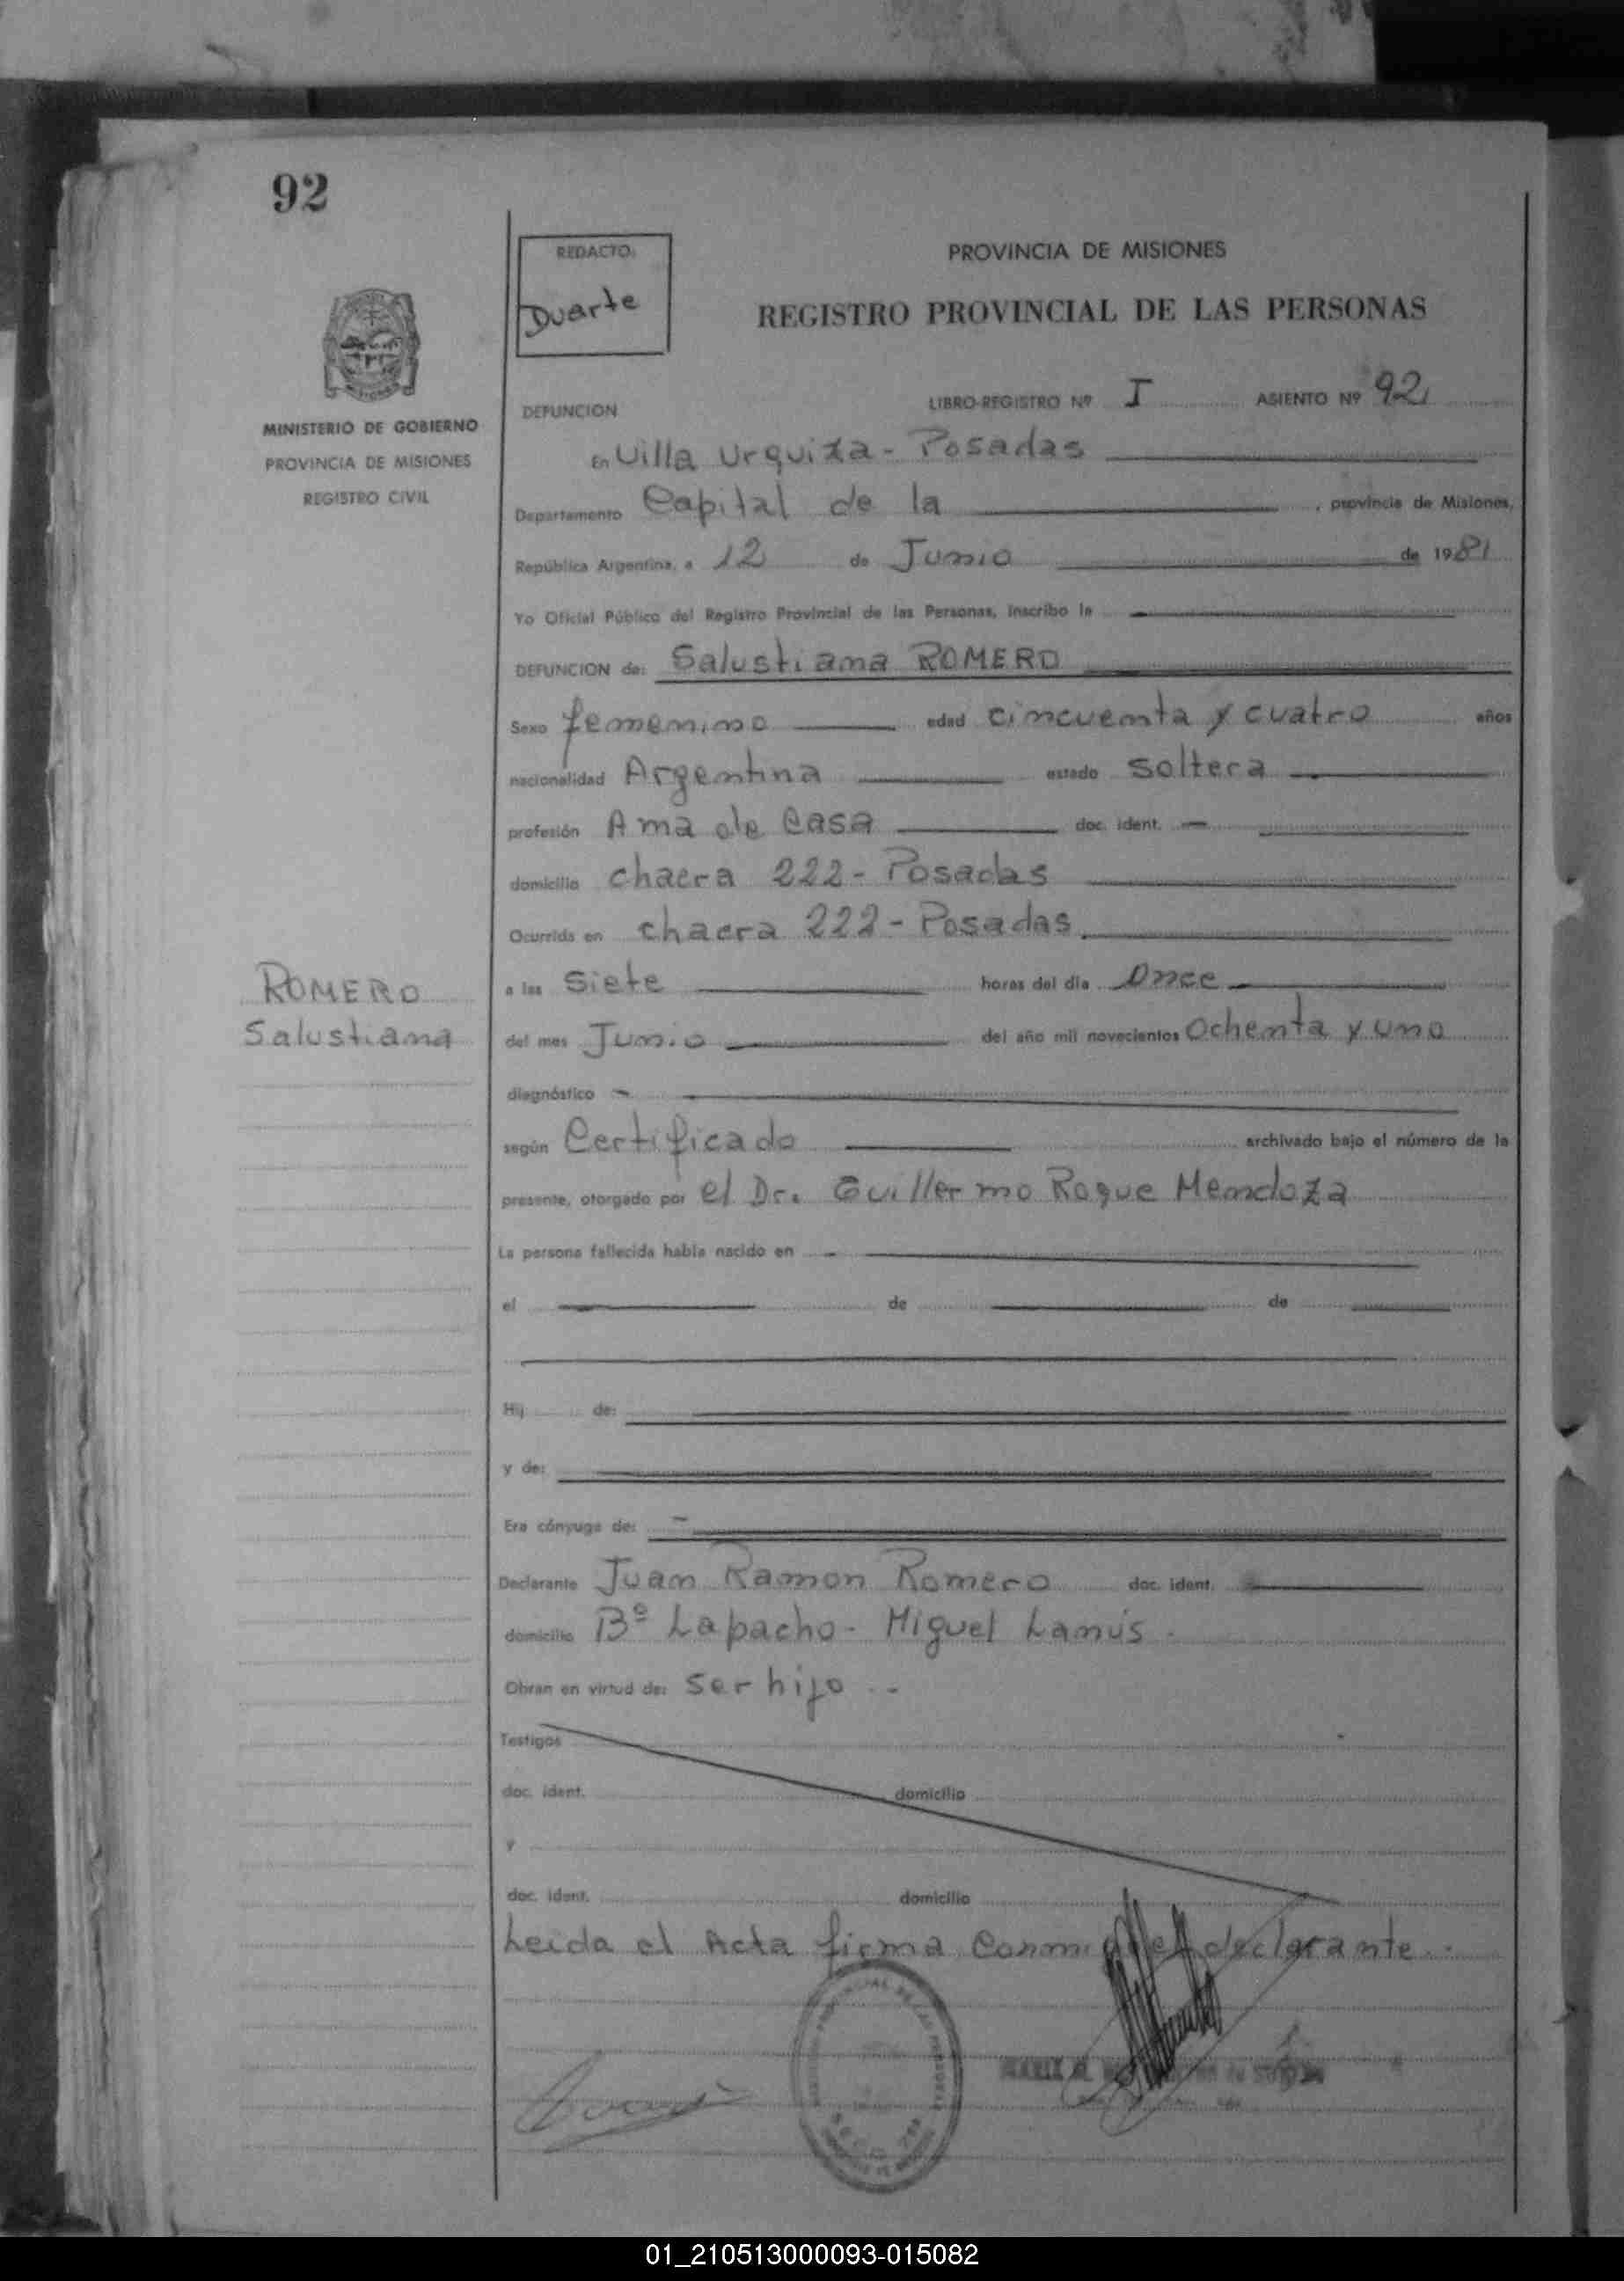 92
REDACTO:
Duarte
PROVINCIA DE MISIONES
REGISTRO PROVINCIAL DE LAS PERSONAS
MINISTERIO DE GOBIERNO
PROVINCIA DE MISIONES
REGISTRO CIVIL
DEFUNCION
LIBRO-REGISTRO Nº I ASIENTO Nº 92
En Villa Urquiza - Posadas
Departamento Capital de la , provincia de Misiones,
República Argentina, a 12 de Junio de 1981
Yo Oficial Público del Registro Provincial de las Personas, inscribo la
DEFUNCION de: Salustiana ROMERO
Sexo femenino edad cincuenta y cuatro años
nacionalidad Argentina estado soltera
profesión Ama de Casa doc. ident. -
domicilio chacra 222 - Posadas
Ocurrida en chacra 222 - Posadas
a las siete horas del día Once
del mes Junio del año mil novecientos Ochenta y uno
ROMERO
Salustiana
diagnóstico -
según Certificado archivado bajo el número de la
presente, otorgado por el Dr. Guillermo Roque Mendoza
La persona fallecida había nacido en -
el de de
Hij de:
y de:
Era cónyuge de: -
Declarante Juan Ramon Romero doc. ident.
domicilio Bº Lapacho - Miguel Lanús .
Obran en virtud de: ser hijo . -
Testigos
doc. ident. domicilio
y
doc. ident. domicilio
Leida el Acta firma Conmigo el declarante . -
01_210513000093-015082